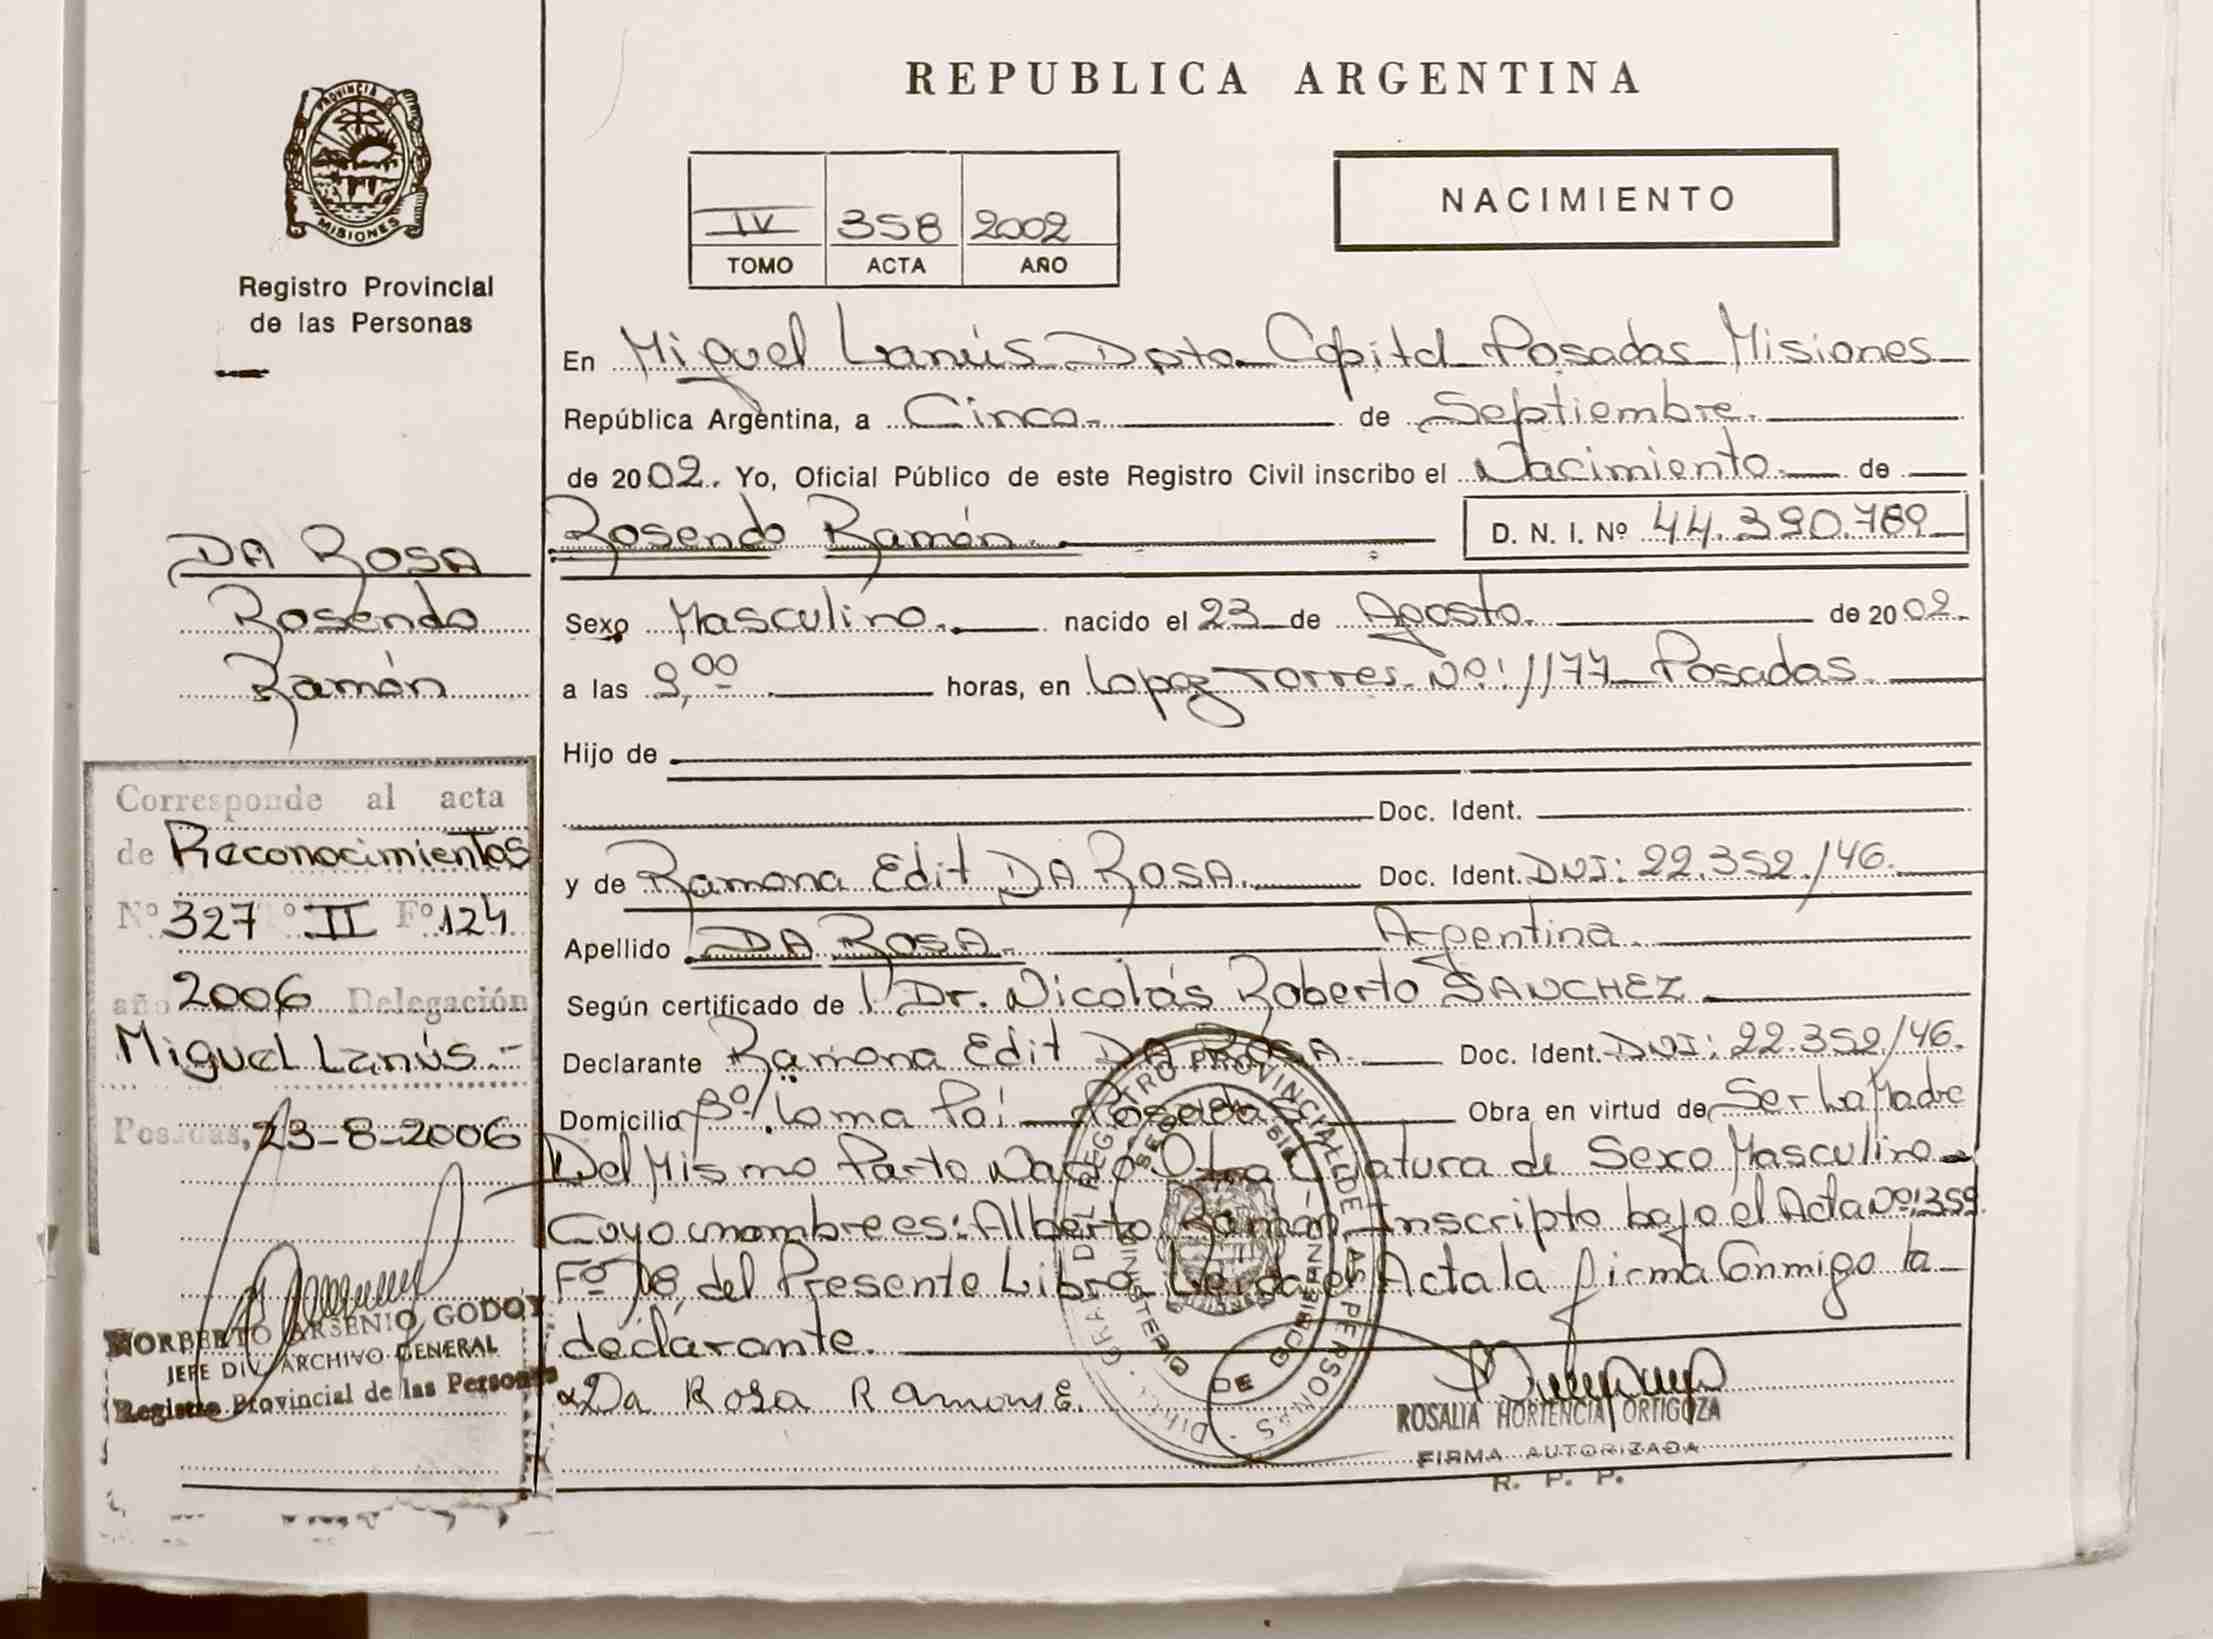 PROVINCIA DE
MISIONES
Registro Provincial
de las Personas
DA ROSA
Rosendo
Ramón
Corresponde al acta
de Reconocimientos
Nº 327 º II Fº 124
año 2006 Delegación
Miguel Lanús.-
Posadas, 23-8-2006
NORBERTO ARSENIO GODOY
JEFE DIV. ARCHIVO GENERAL
Registro Provincial de las Personas
REPUBLICA ARGENTINA
IV 358 2002
TOMO ACTA AÑO
NACIMIENTO
En Miguel Lanús Dpto. Capital Posadas Misiones
República Argentina, a Cinco de Septiembre.
de 2002. Yo, Oficial Público de este Registro Civil inscribo el Nacimiento de
Rosendo Ramón. D. N. I. Nº 44.390.789
Sexo Masculino. nacido el 23 de Agosto. de 2002.
a las 9,00 horas, en Lopez Torres Nº: 1177 Posadas.
Hijo de
Doc. Ident.
y de Ramona Edit DA ROSA. Doc. Ident. DNI: 22.352.146.
Apellido DA ROSA. Argentina.
Según certificado de Dr. Nicolás Roberto SANCHEZ
Declarante Ramona Edit DA ROSA. Doc. Ident. DNI: 22.352.146.
Domicilio Bº. Loma Poí Posadas Obra en virtud de Ser La Madre
Del Mismo Parto Nació Otra Criatura de Sexo Masculino
Cuyo nombre es: Alberto Ramón Inscripto bajo el Acta Nº: 359
Fº 18, del Presente Libro. Leída el Acta la firma Conmigo la
declarante.
Da Rosa Ramon E.
ROSALIA HORTENCIA ORTIGOZA
FIRMA AUTORIZADA
R. P. P.
DIREC. GRAL. DEL REGISTRO PROVINCIAL DE LAS PERSONAS
MINISTERIO DE GOBIERNO